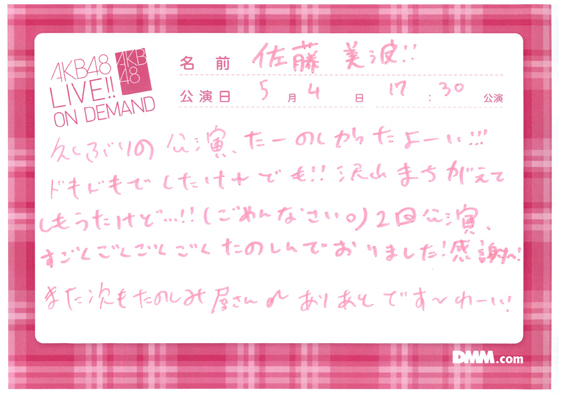 AKB48
LIVE!!
ON DEMAND
AKB
48
名前 佐藤 美波!!
公演日 5月4日 17:30公演
久しぶりの公演、たーのしかったよーい!!!
ドキドキでしたけれども!!沢山まちがえて
しもうたけど…!!(ごめんなさい。)2回公演、
すごくごくごくごくたのしんでおりました!感謝ッ!
また次もたのしみ屋さん ありあとです〜わーい!
DMM.com